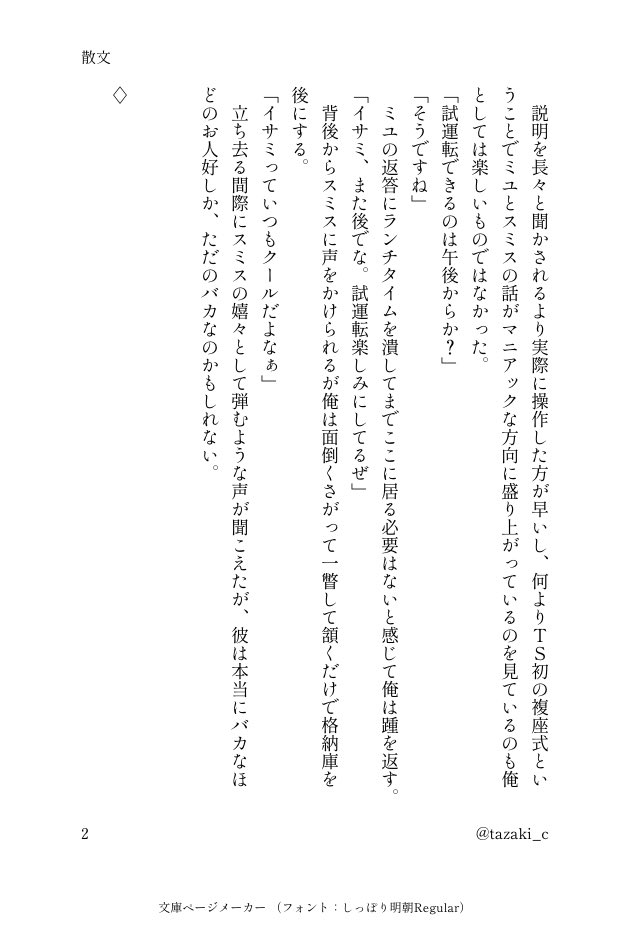 散文
　説明を長々と聞かされるより実際に操作した方が早いし、何よりＴＳ初の複座式とい
うことでミユとスミスの話がマニアックな方向に盛り上がっているのを見ているのも俺
としては楽しいものではなかった。
「試運転できるのは午後からか？」
「そうですね」
　ミユの返答にランチタイムを潰してまでここに居る必要はないと感じて俺は踵を返す。
「イサミ、また後でな。試運転楽しみにしてるぜ」
　背後からスミスに声をかけられるが俺は面倒くさがって一瞥して頷くだけで格納庫を
後にする。
「イサミっていつもクールだよなぁ」
　立ち去る間際にスミスの嬉々として弾むような声が聞こえたが、彼は本当にバカなほ
どのお人好しか、ただのバカなのかもしれない。
◇
2
@tazaki_c
文庫ページメーカー （フォント：しっぽり明朝Regular）